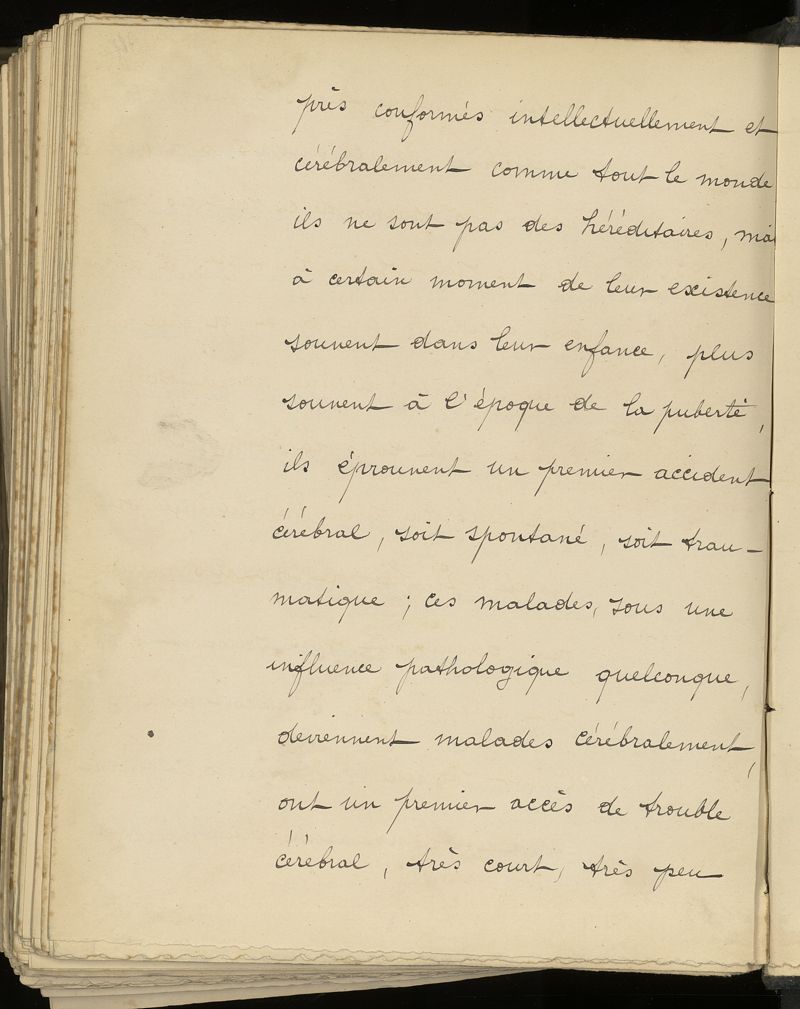 près conformés intellectuellement et
cérébralement comme tout le monde
ils ne sont pas des héréditaires, mai
à certain moment de leur existence
souvent dans leur enfance, plus
souvent à l'époque de la puberté,
ils éprouvent un premier accident
cérébral, soit spontané, soit trau-
matique ; ces malades, sous une
influence pathologique quelconque,
deviennent malades cérébralement,
ont un premier accès de trouble
cérébral, très court, très peu